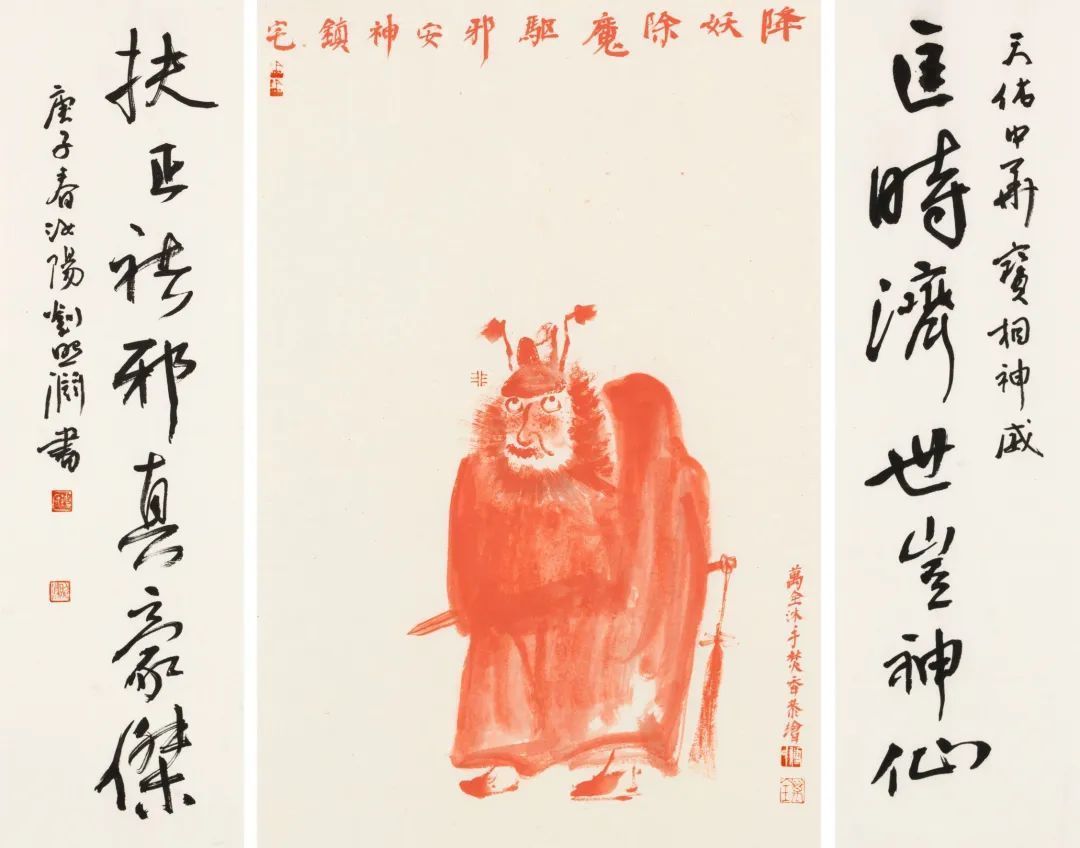 天佑中華寶相神威
匡時濟世豈神仙
降妖除魔驅邪安神鎮宅
萬全沐手焚香恭繪
扶正祛邪真豪傑
庚子春汝陽劉照書